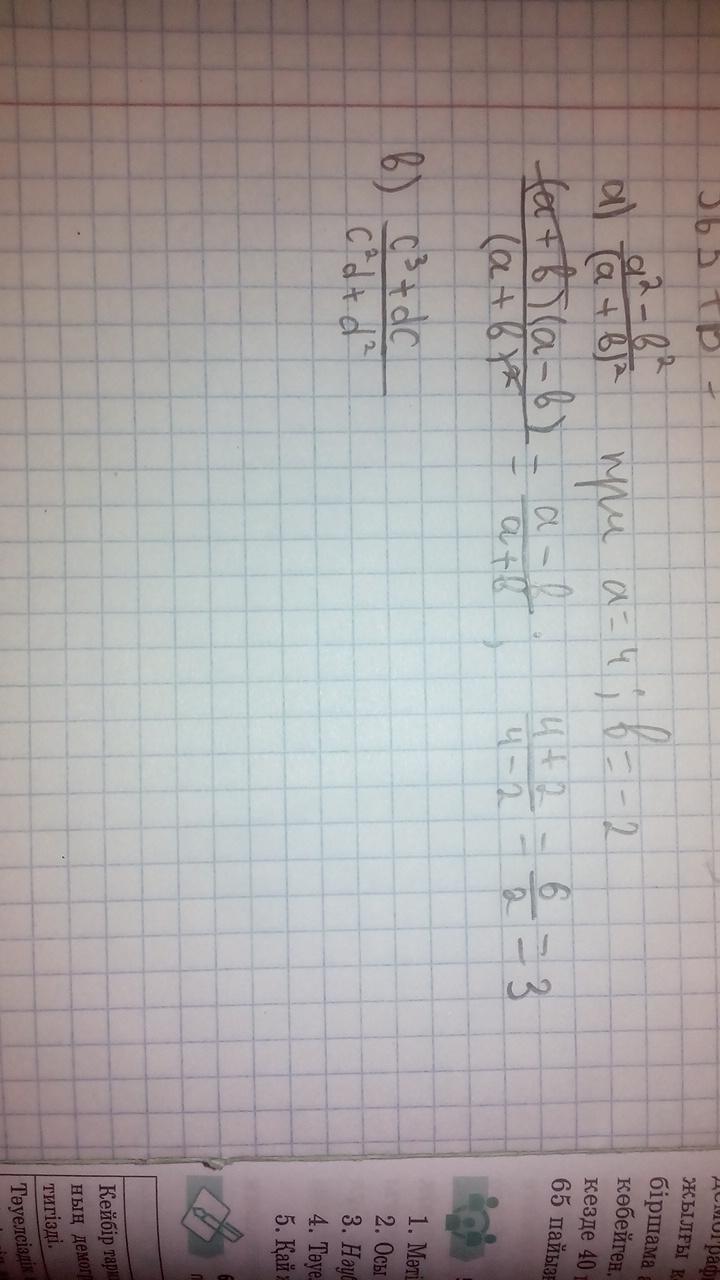 а) a² - b² / (a + b)² при a = 4; b = -2
(a + b)(a - b) / (a + b)² = a - b / a + b; 4 + 2 / 4 - 2 = 6 / 2 = 3
в) c³ + dc / c²d + d²
жылғы
біршама
көбейген
кезде 40
65 пайызы
1. Мәті
2. Осы
3. Нәуб
4. Тәуе
5. Қай
Кейбір тари
ның демог
тигізді.
Тәуелсіздік